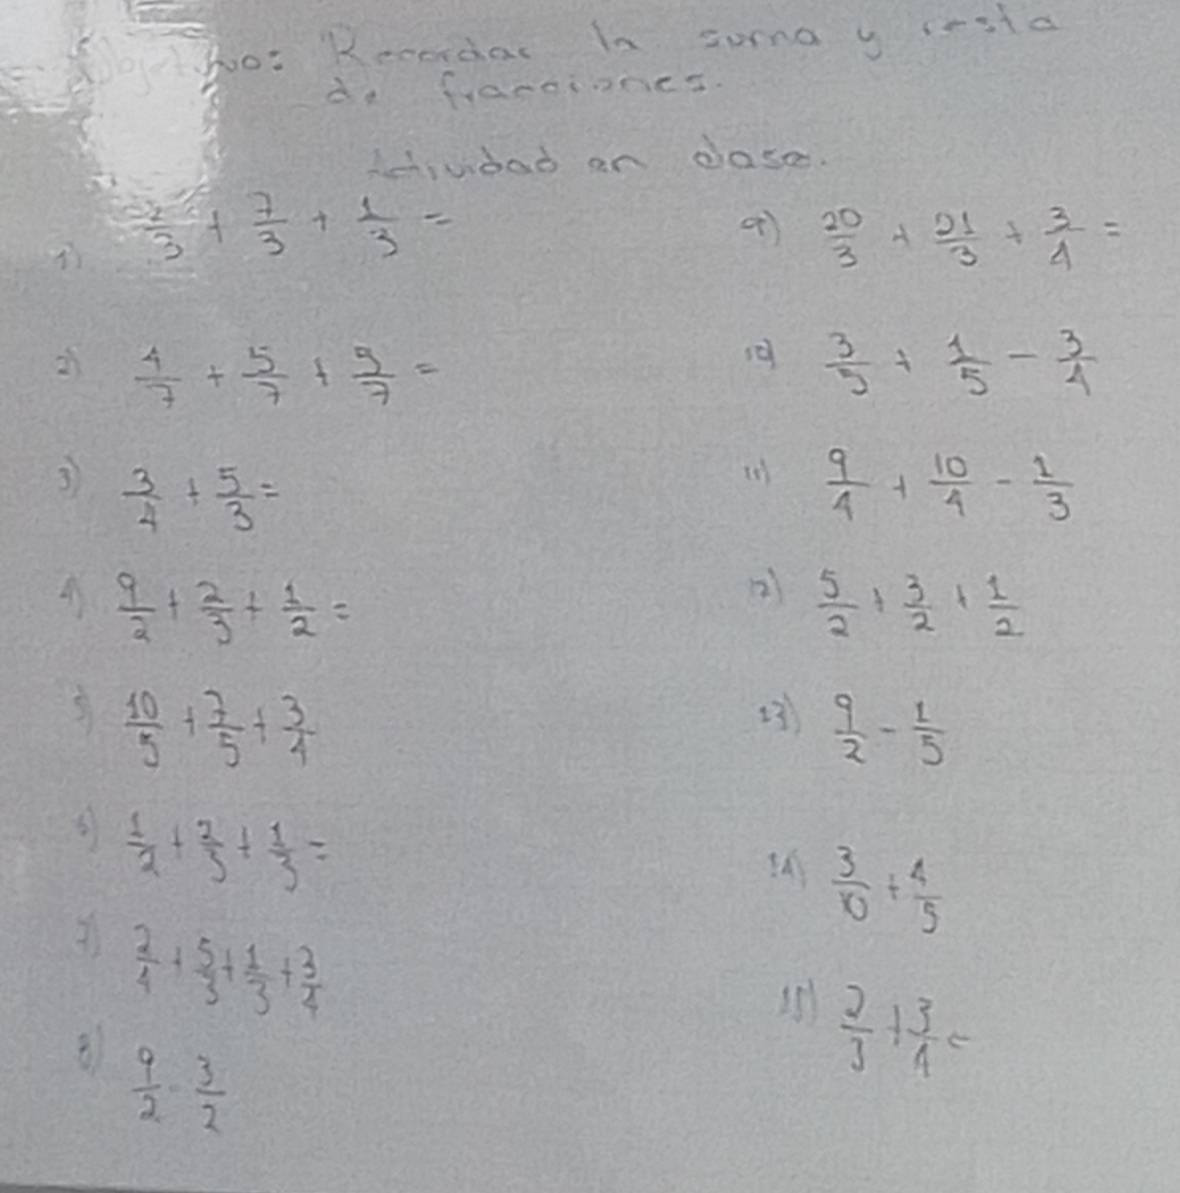 Objetivo: Recordar la suma y resta
de fracciones.
Actividad en clase.
1) 2/3 + 7/3 + 1/3 =
2) 4/7 + 5/7 + 9/7 =
3) 3/4 + 5/3 =
4) 9/2 + 2/3 + 1/2 =
5) 10/5 + 7/5 + 3/4
6) 1/2 + 2/3 + 1/3 =
7) 2/4 + 5/3 + 1/3 + 3/4
8) 9/2 - 3/2
9) 20/3 + 21/3 + 3/4 =
10) 3/5 + 1/5 - 3/4
11) 9/4 + 10/4 - 1/3
12) 5/2 + 3/2 + 1/2
13) 9/2 - 1/5
14) 3/10 + 4/5
15) 2/3 + 3/4 =